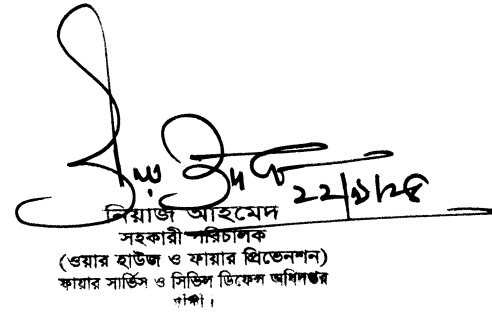 নিয়াজ আহমেদ
সহকারী পরিচালক
(ওয়ার হাউজ ও ফায়ার প্রিভেনশন)
ফায়ার সার্ভিস ও সিভিল ডিফেন্স অধিদপ্তর
ঢাকা।